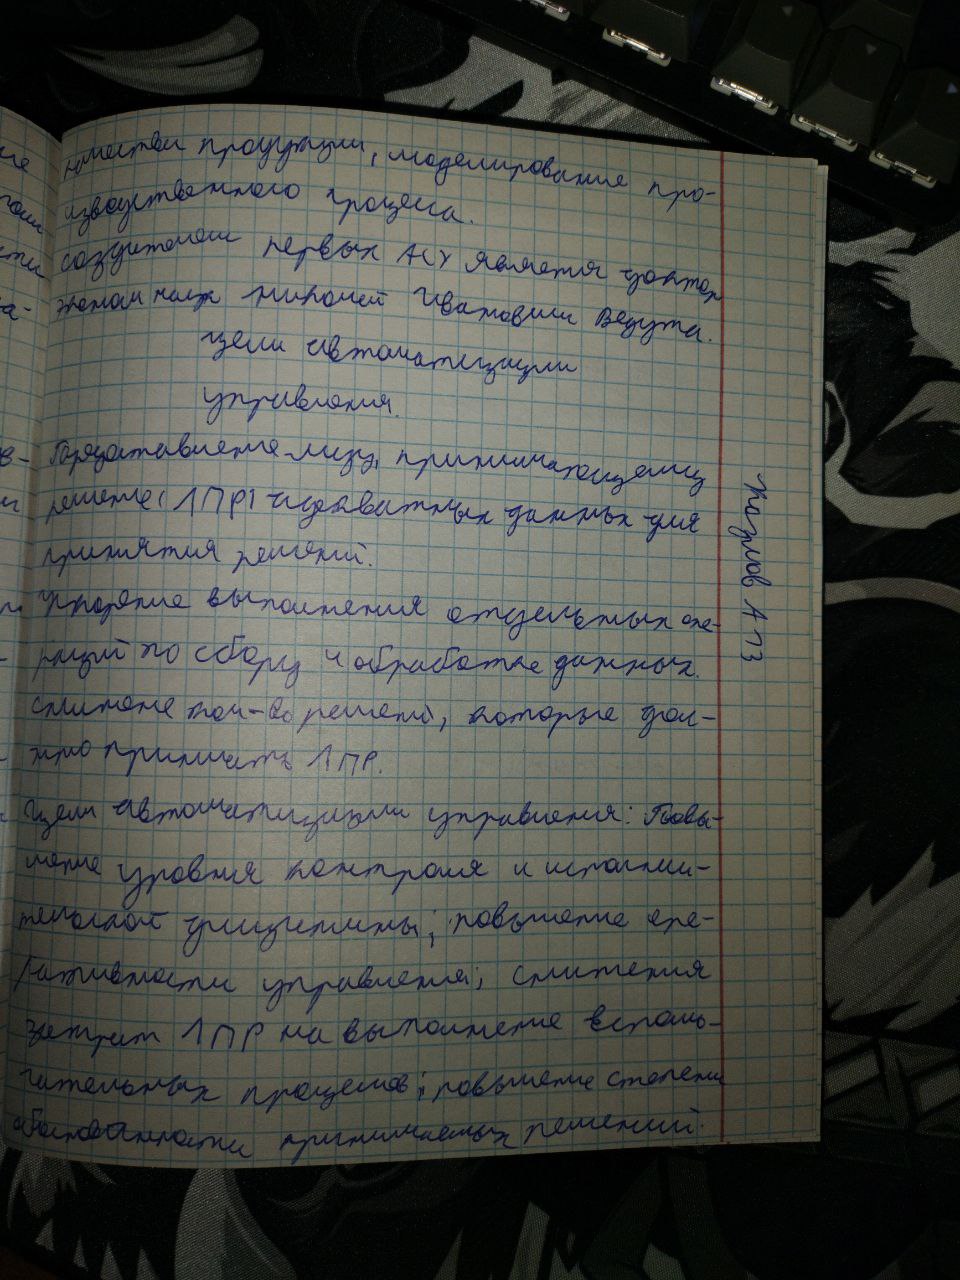 продукции, моделирование про-
изводственного процеса.
создателем первых АСУ является доктор
эконом наук Николай Иванович Ведута.
цели автоматизации
управления.
Предоставление лицу, принимающему
решение (ЛПР) адекватных данных для
принятия решений.
Ускорение выполнения отдельных опе-
раций по сбору и обработке данных.
снижене кол-во решений, которые дол-
жно принимать ЛПР.
Цели автоматизации управления: Повы-
шение уровня контроля и исполни-
тельской дисциплины; повышение опе-
ративности управления; снижения
затрат ЛПР на выполнение вспомо-
гательных процессов; повышение степени
обоснованности принимаемых решений.
А 13